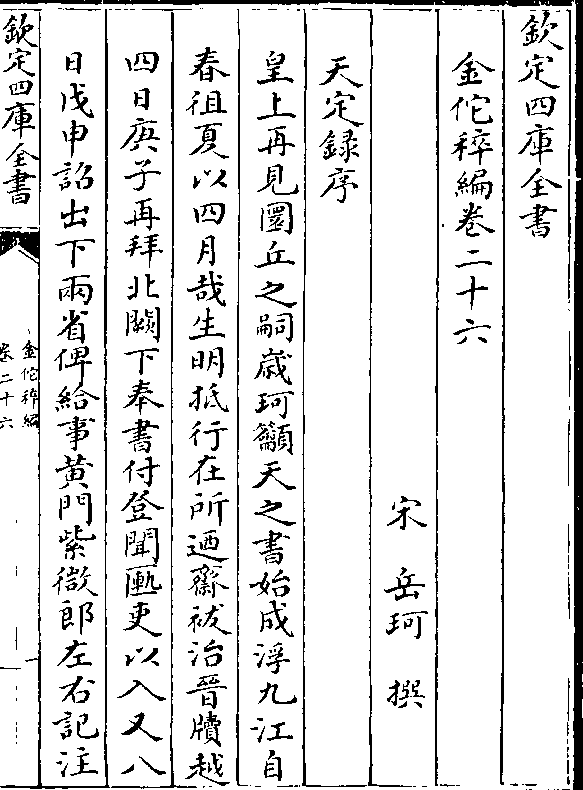 欽定四庫全書
金佗稡編卷二十六
宋 岳珂 撰
天定録序
皇上再見圜丘之嗣歲珂籲天之書始成浮九江自
春徂夏以四月哉生明抵行在所迺齋祓治晉牘越
四日庚子再拜北闕下奉書付登聞匭吏以入又八
日戊申詔出下兩省俾給事黃門紫微郎左右記注
欽定四庫全書
金佗稡編
卷二十六